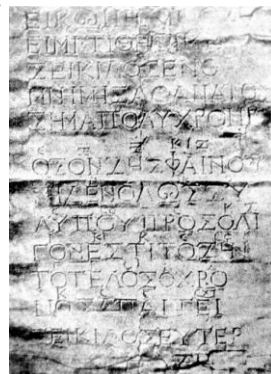 ΕΙΚΩΝΗΛΙ
ΕΙΜΙΤΙΘΗΣΙΜΕ
ΣΕΙΚΙΛΟΣΕΝΘ
ΜΝΗΜΗΣΑΘΑΝΑΤΟ
ΣΗΜΑΠΟΛΥΧΡΟΝΙ
ΟΣΟΝΖΗΣΦΑΙΝΟΥ
ΜΗΔΕΝΟΛΩΣΣΥ
ΛΥΠΟΥΠΡΟΣΟΛΙ
ΓΟΝΕΣΤΙΤΟΖΗΝ
ΤΟΤΕΛΟΣΟΧΡΟ
ΝΟΣΑΠΑΙΤΕΙ
ΣΕΙΚΙΛΟΣΕΥΤΕΡ
ΖΗ